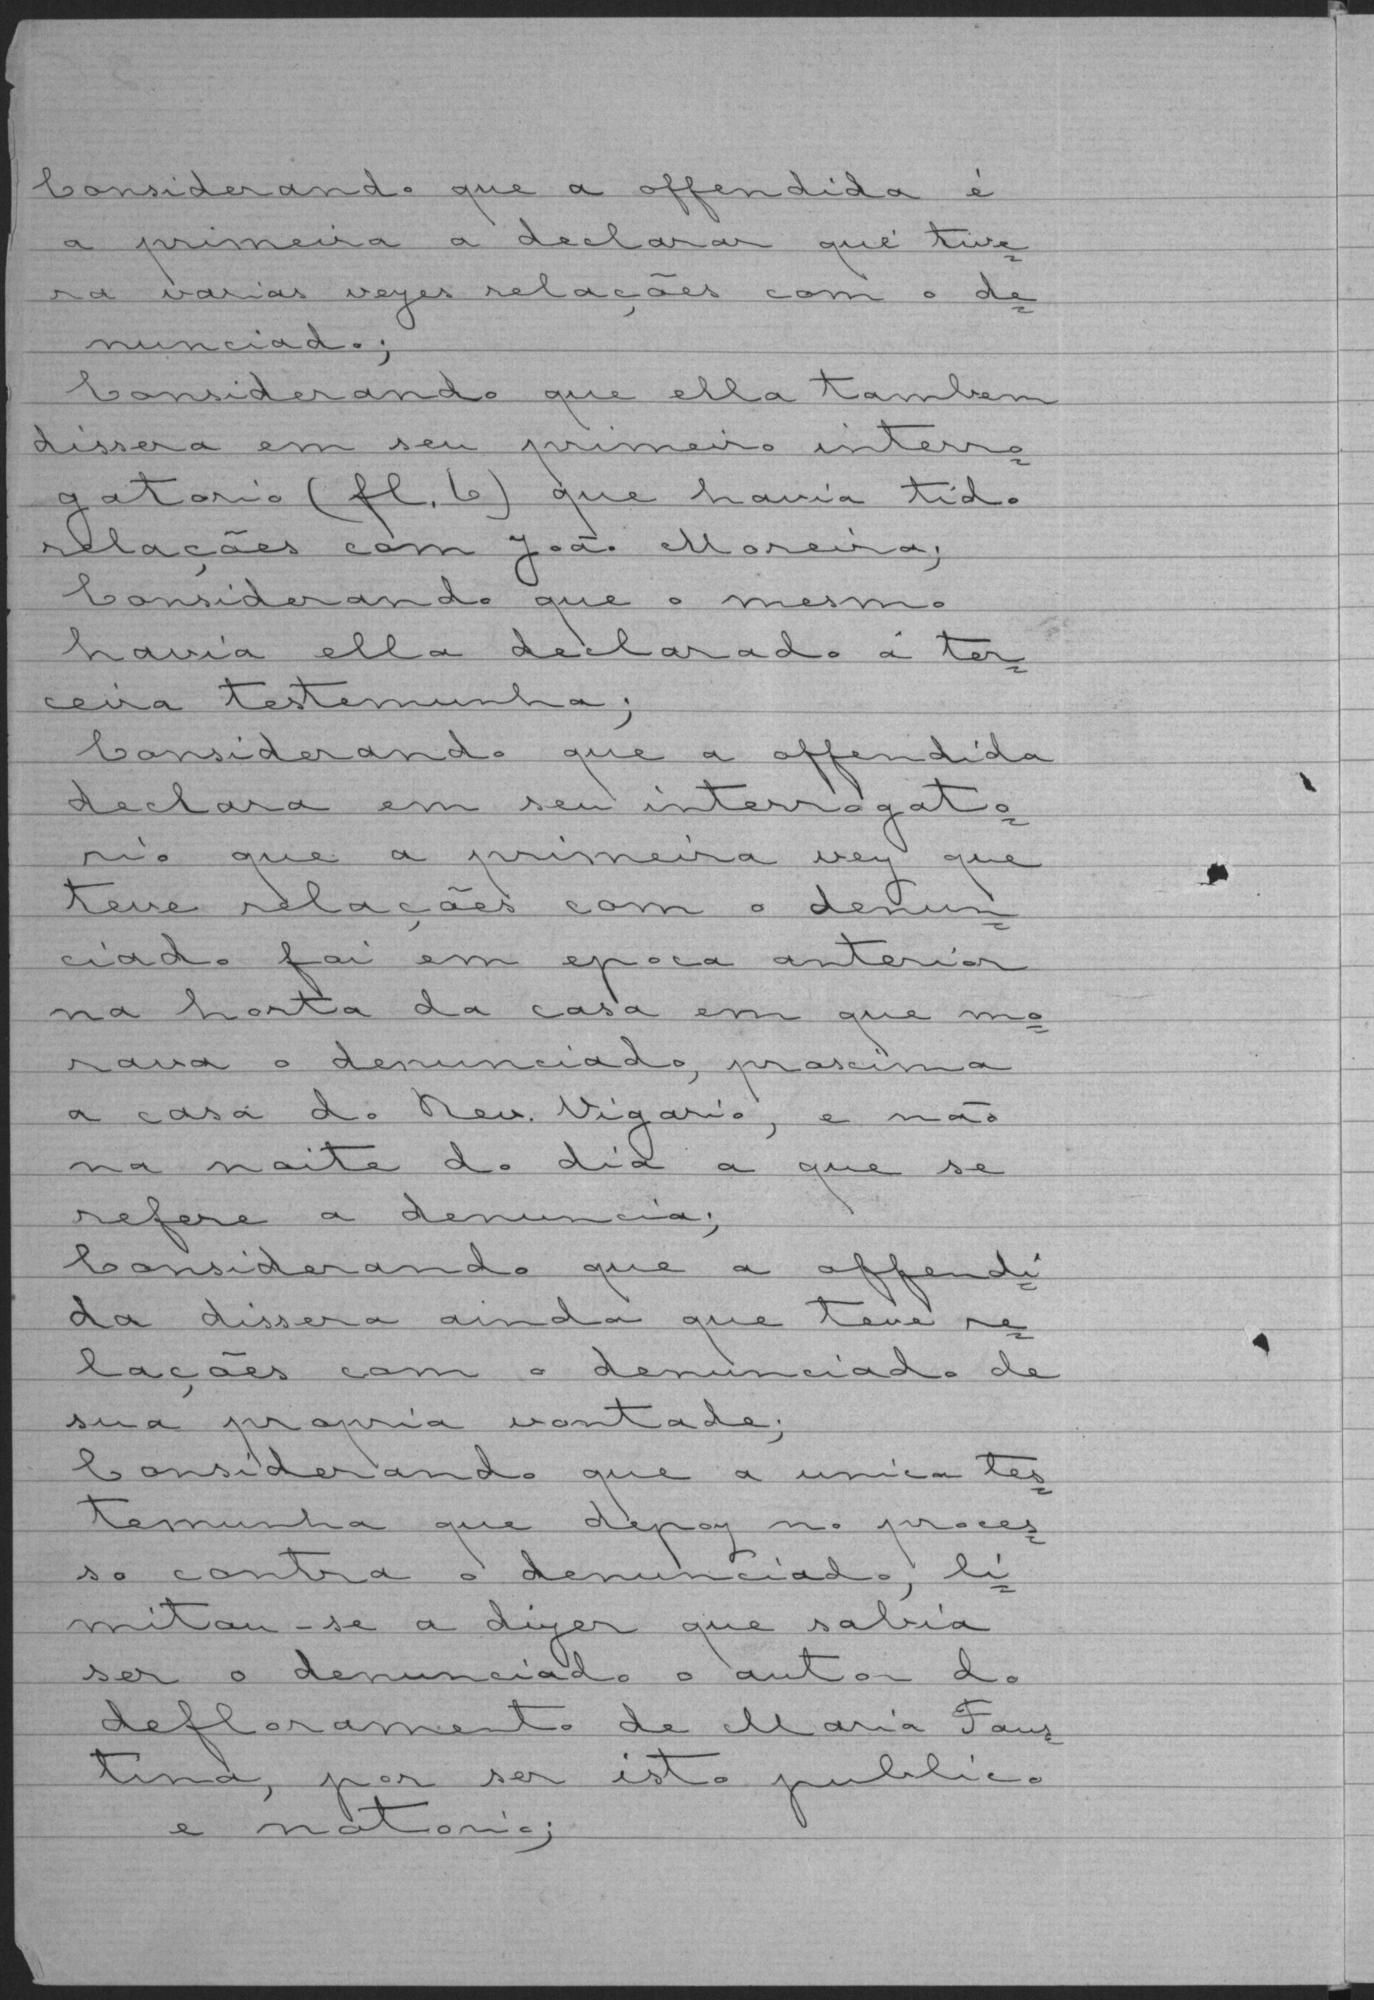 Considerando que a offendida é
a primeira a declarar que tive=
ra varias vezes relações com o de=
nunciado;
Considerando que ella tambem
dissera em seu primeiro interro=
gatorio (fl. 6) que havia tido
relações com João Moreira;
Considerando que o mesmo
havia ella declarado á ter=
ceira testemunha;
Considerando que a offendida
declara em seu interrogato=
rio que a primeira vez que
teve relações com o denun=
ciado foi em epoca anterior
na horta da casa em que mo=
rava o denunciado, proxima
a casa do Rev. Vigario, e não
na noite do dia a que se
refere a denuncia;
Considerando que a offendi=
da dissera ainda que teve re=
lações com o denunciado de
sua propria vontade;
Considerando que a unica tes=
temunha que depoz no proces=
so contra o denunciado, li=
mitou-se a dizer que sabia
ser o denunciado o autor do
defloramento de Maria Faus=
tina, por ser isto publico
e notorio;